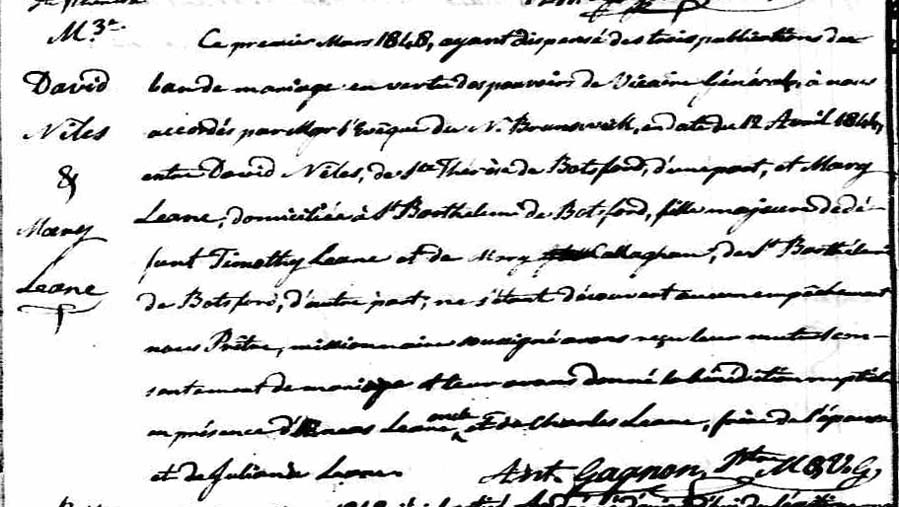 M. 3e.
David
Niles
&
Mary
Leane
Ce premier Mars 1848, ayant dispensé des trois publications de
ban de mariage en vertu des pouvoirs de Vicaire Général, à nous
accordés par Mgr l'Evêque du N. Brunswick, en date du 12 Avril 1844,
entre David Niles, de Ste Thérèse de Botsford, d'une part, et Mary
Leane, domiciliée à St Barthelemi de Botsford, fille majeure de dé-
funt Timothy Leane et de Mary Callaghan, de St Barthélemi
de Botsford, d'autre part; ne s'étant découvert aucun empêchement
nous Prêtre, missionnaire soussigné avons reçu leur mutuel con-
sentement de mariage et leur avons donné la bénédiction nuptiale
en présence d' Leane oncle, et de Charles Leane, frère de l'épouse
et de Leane
Ant. Gagnon, Ptre M. & V.G.